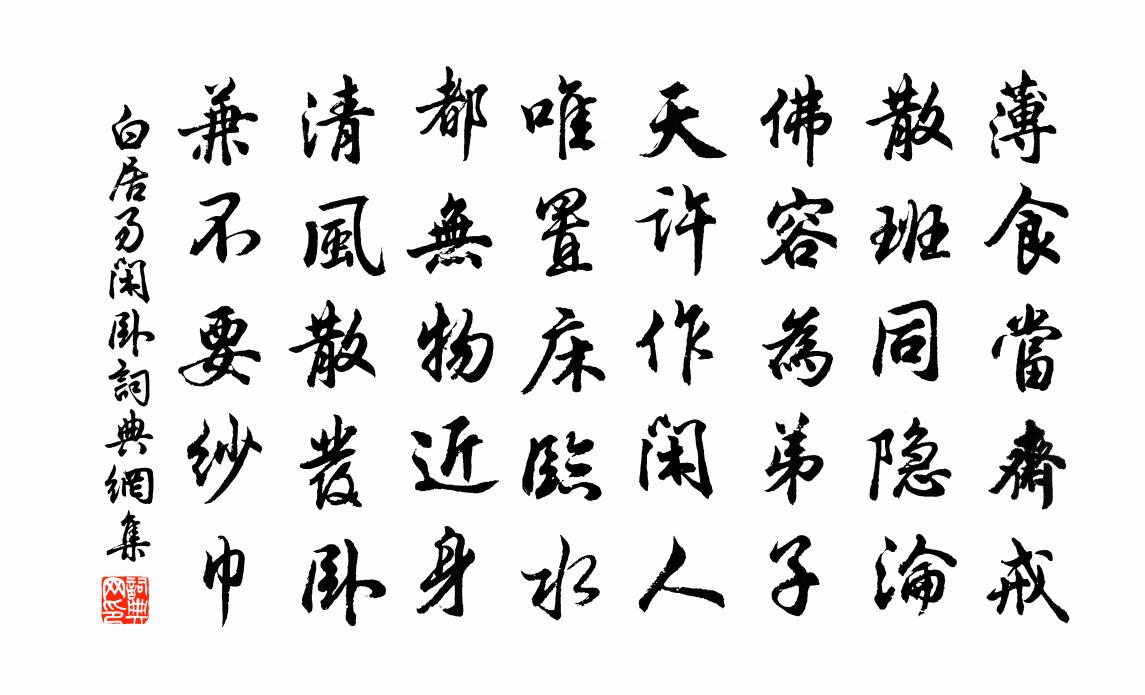 薄食當齋戒
散班同隐淪
佛容為弟子
天許作閑人
唯置床臨水
都無物近身
清風散發卧
兼不要紗巾
白居易閑卧詞典網集
詞典網印